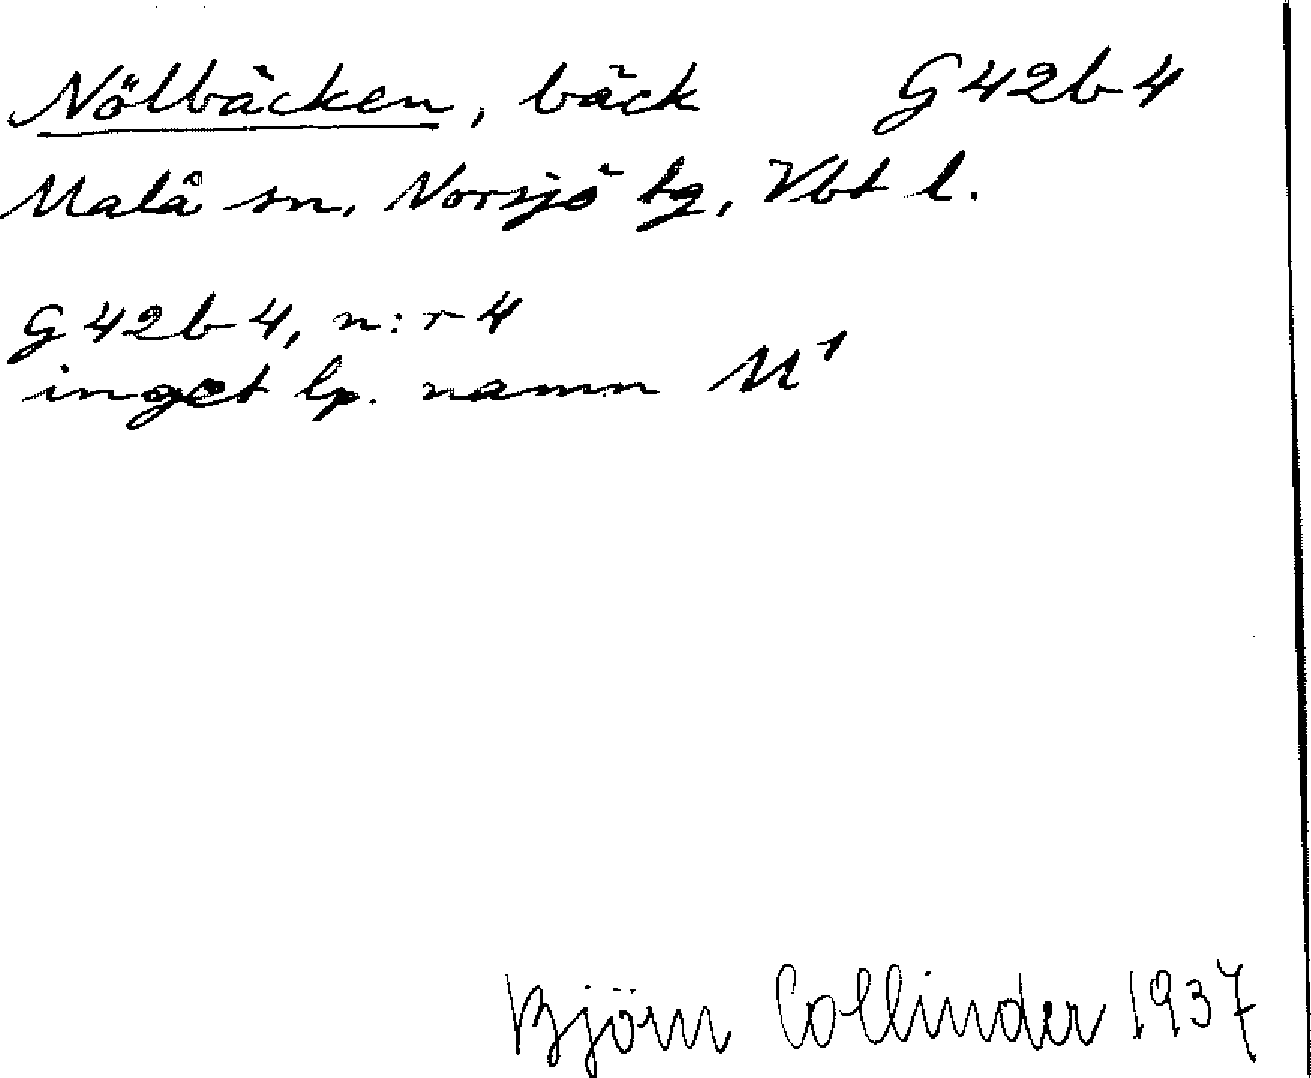 Nölbäcken, bäck G42b4
Malå sn, Norsjö tg, Vbt l.
G42b4, n:r 4
inget lp. namn M¹
Björn Collinder 1937